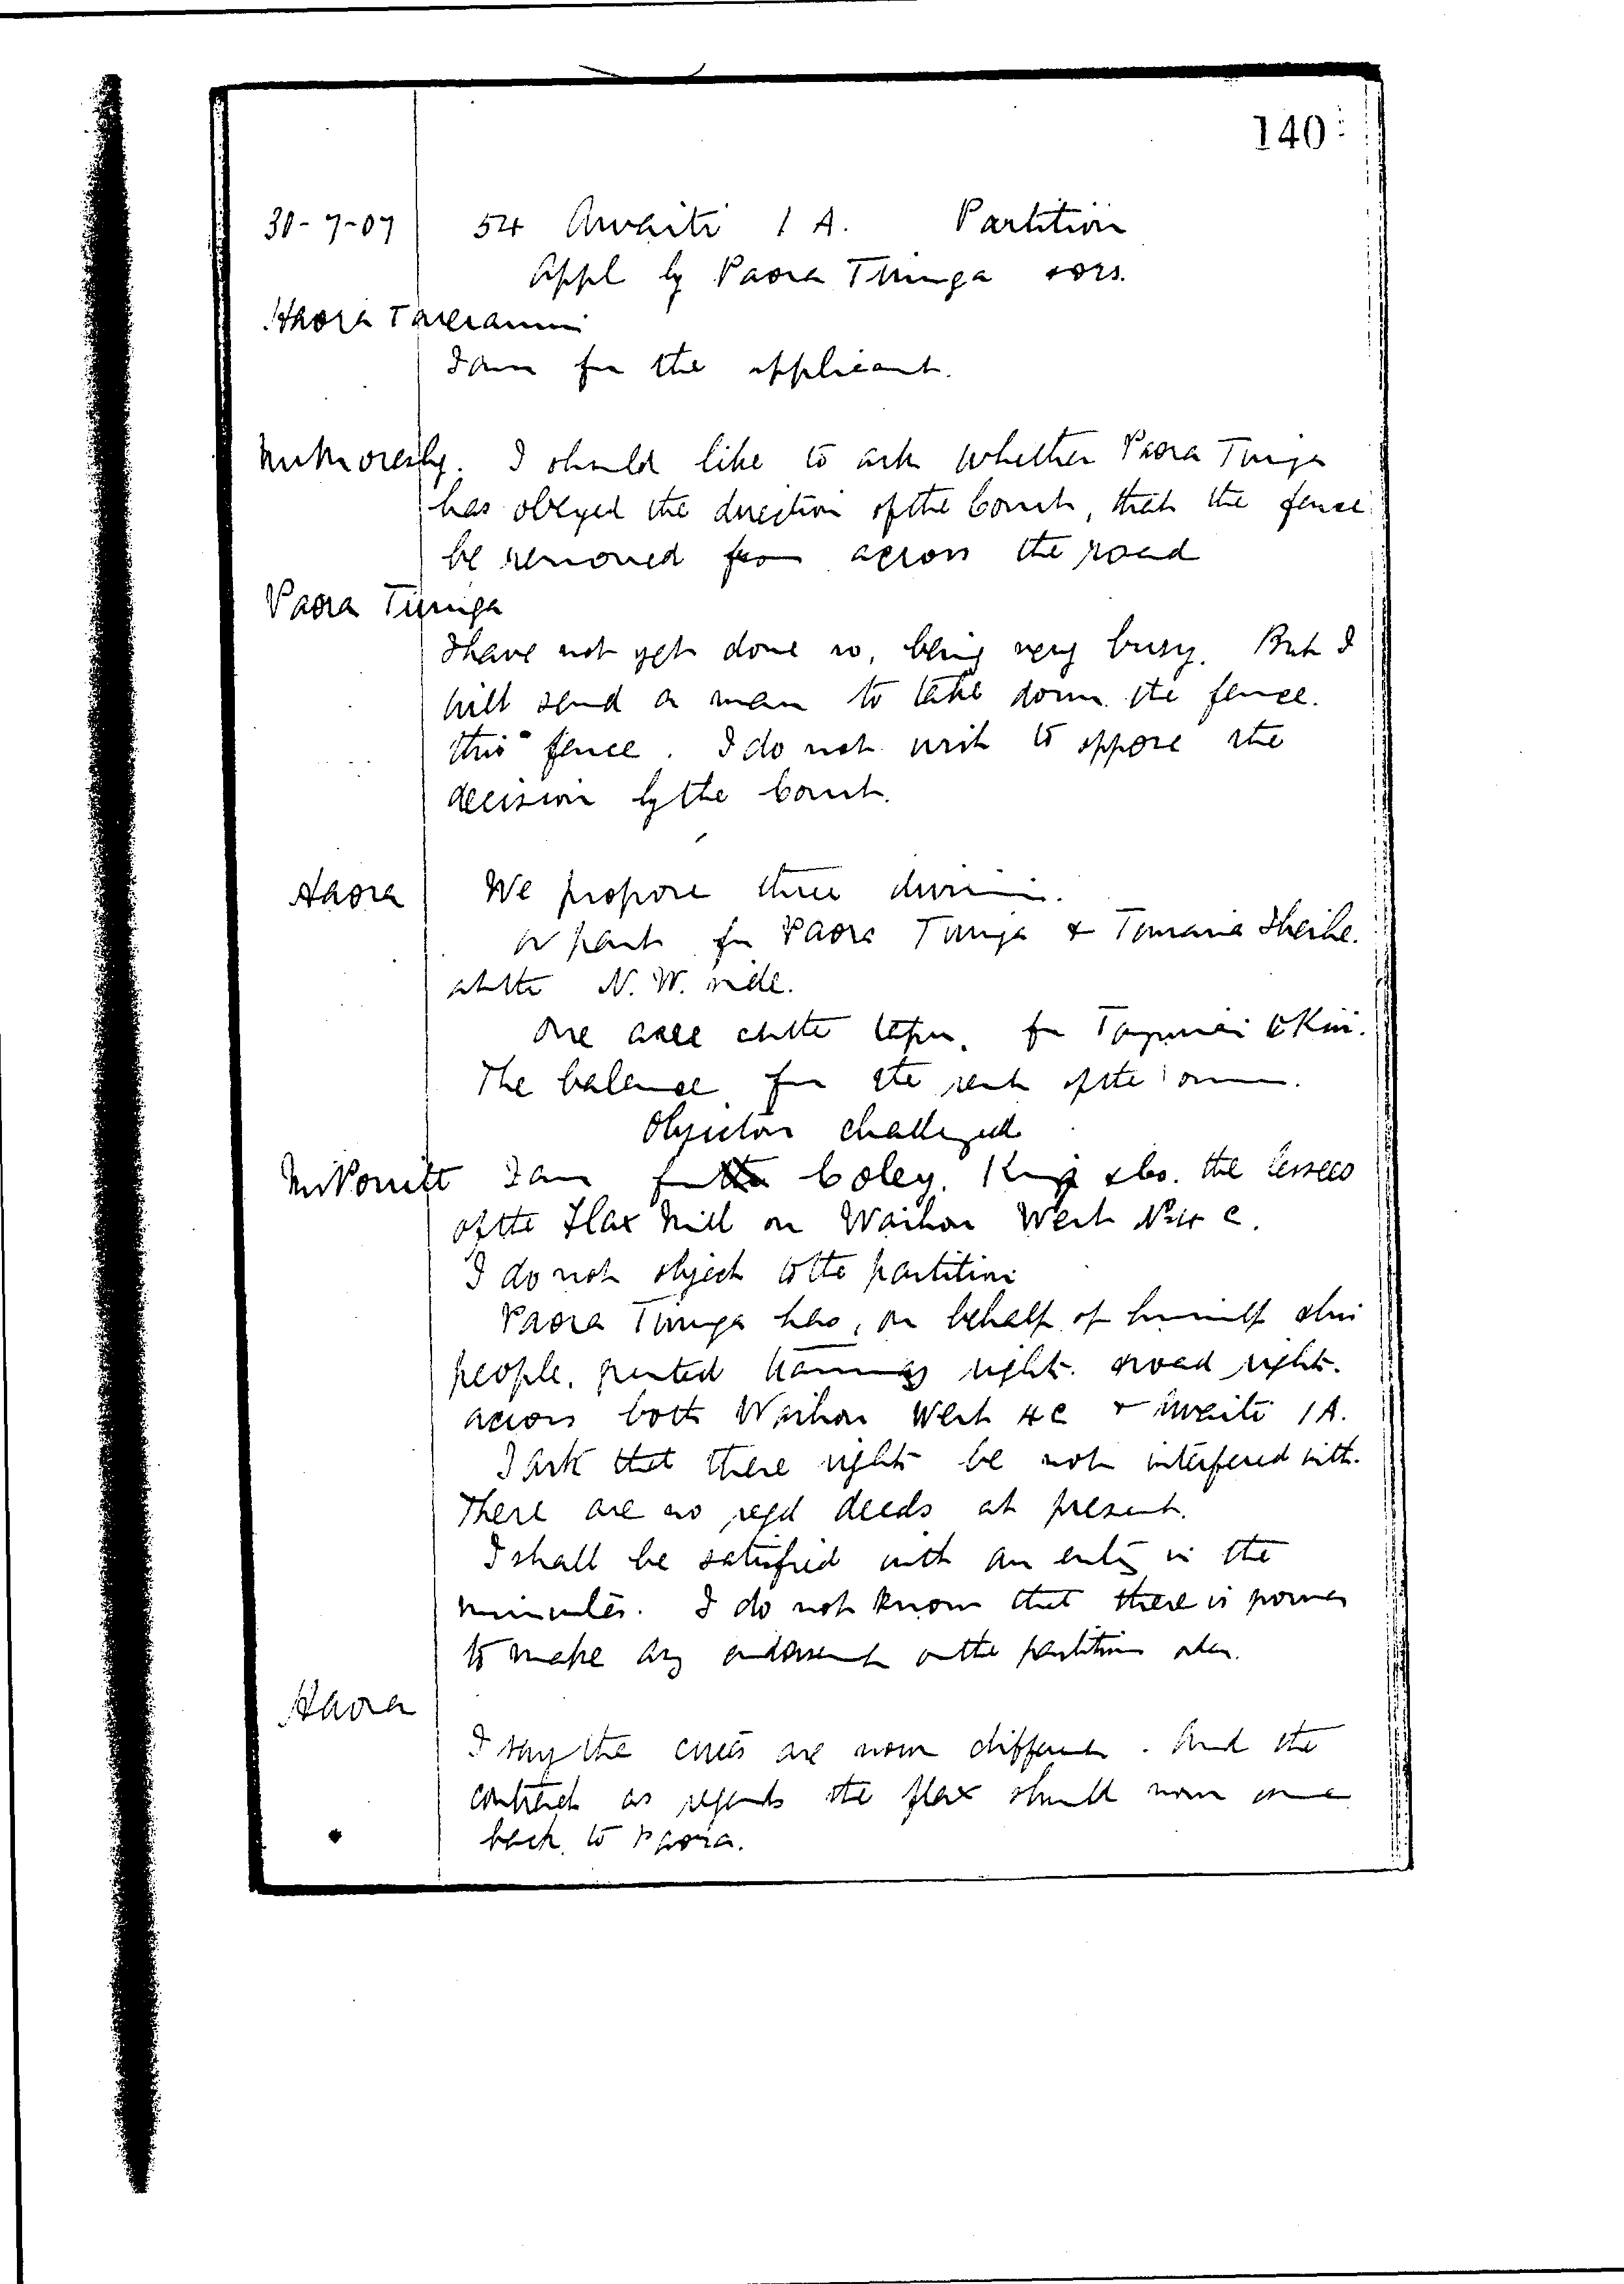 140
30-7-07 54 Awaiti 1A. Partition
Appl by Paora Tiunga & ors.
Haora Tareranui
I am for the applicant.
Mr Moresby. I should like to ask whether Paora Tiunga
has obeyed the direction of the Court, that the fence
be removed from across the road
Paora Tiunga
I have not yet done so, being very busy. But I
will send a man to take down the fence.
this fence. I do not wish to oppose the
decision by the Court.
Haora We propose three
part for Paora Tiunga &
at the N. W. side.
One acre at the for
The balance for the rest of the owners.
Objectors challenged
Mr Porritt I am for Coley, King & Co. the lessees
of the Flax Mill on Waihou West No 4 C.
I do not object to the partition
Paora Tiunga has, on behalf of himself & his
people, granted tramway rights & road rights.
across both Waihou West 4C & Awaiti 1A.
I ask that these rights be not interfered with.
There are no regd deeds at present.
I shall be satisfied with an entry in the
minutes. I do not know that there is power
to make any endorsement on the partition order.
Haora
I say the are now different. And the
contract as regards the flax should now come
back to Paora.